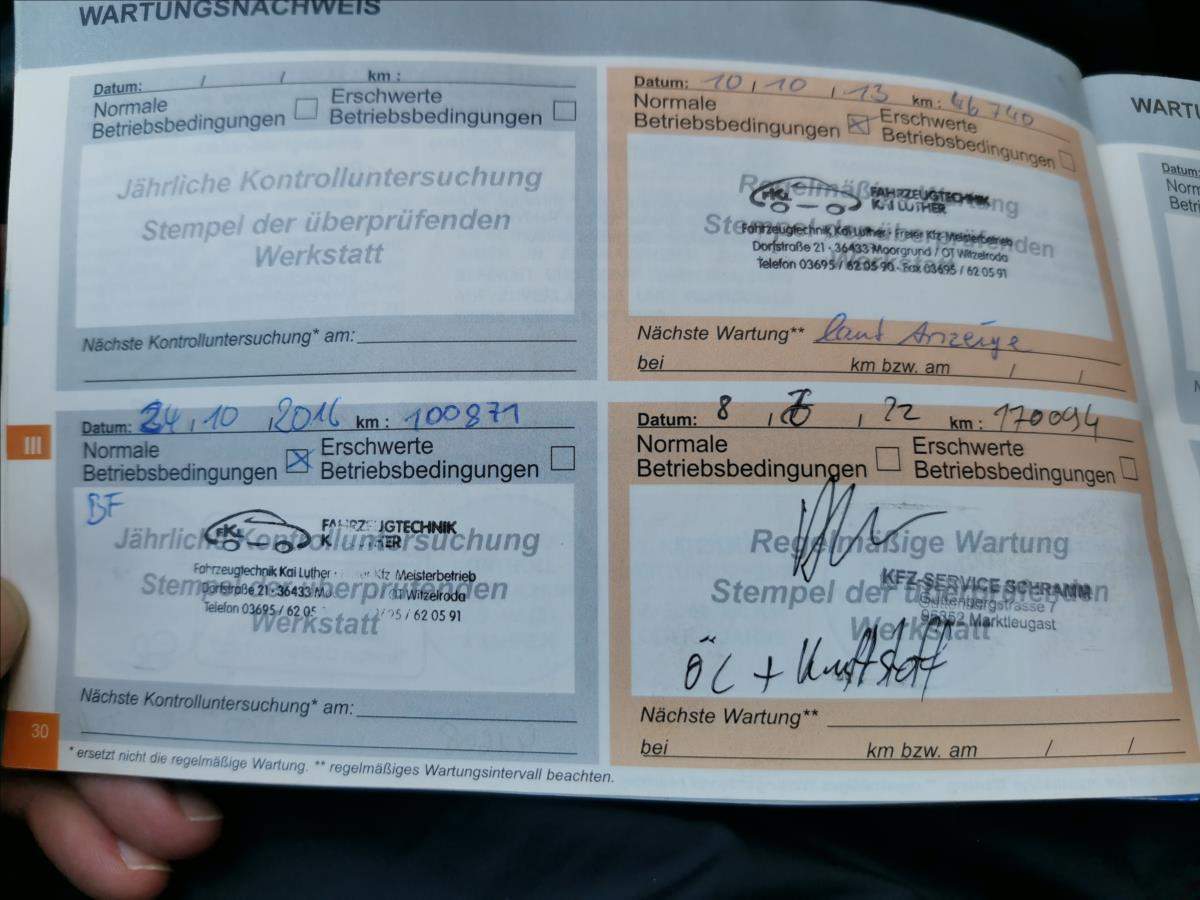 WARTUNGSNACHWEIS
Datum: / / km :
Normale Betriebsbedingungen
Erschwerte Betriebsbedingungen
Jährliche Kontrolluntersuchung
Stempel der überprüfenden
Werkstatt
Nächste Kontrolluntersuchung* am:
Datum: 10 , 10 , 13 km : 46 740
Normale Betriebsbedingungen
Erschwerte Betriebsbedingungen
Regelmäßige Wartung
Stempel der überprüfenden
Werkstatt
FKL
FAHRZEUGTECHNIK
KAI LUTHER
Fahrzeugtechnik Kai Luther · Freier Kfz-Meisterbetrieb
Dorfstraße 21 · 36433 Moorgrund / OT Witzelroda
Telefon 03695 / 62 05 90 · Fax 03695 / 62 05 91
Nächste Wartung** laut Anzeige
bei km bzw. am / /
III
Datum: 24 , 10 , 2016 km : 100871
Normale Betriebsbedingungen
Erschwerte Betriebsbedingungen
BF
Jährliche Kontrolluntersuchung
Stempel der überprüfenden
Werkstatt
FKL
FAHRZEUGTECHNIK
LUTHER
Fahrzeugtechnik Kai Luther · Kfz Meisterbetrieb
Dorfstraße 21 · 36433 OT Witzelroda
Telefon 03695 / 62 05 / 62 05 91
Nächste Kontrolluntersuchung* am:
Datum: 8 , , 22 km : 170094
Normale Betriebsbedingungen
Erschwerte Betriebsbedingungen
Regelmäßige Wartung
Stempel der überprüfenden
Werkstatt
KFZ-SERVICE SCHRAMM
Guttenbergstrasse 7
95352 Marktleugast
ÖL +
Nächste Wartung**
bei km bzw. am / /
30
* ersetzt nicht die regelmäßige Wartung. ** regelmäßiges Wartungsintervall beachten.
WARTU
Datum: